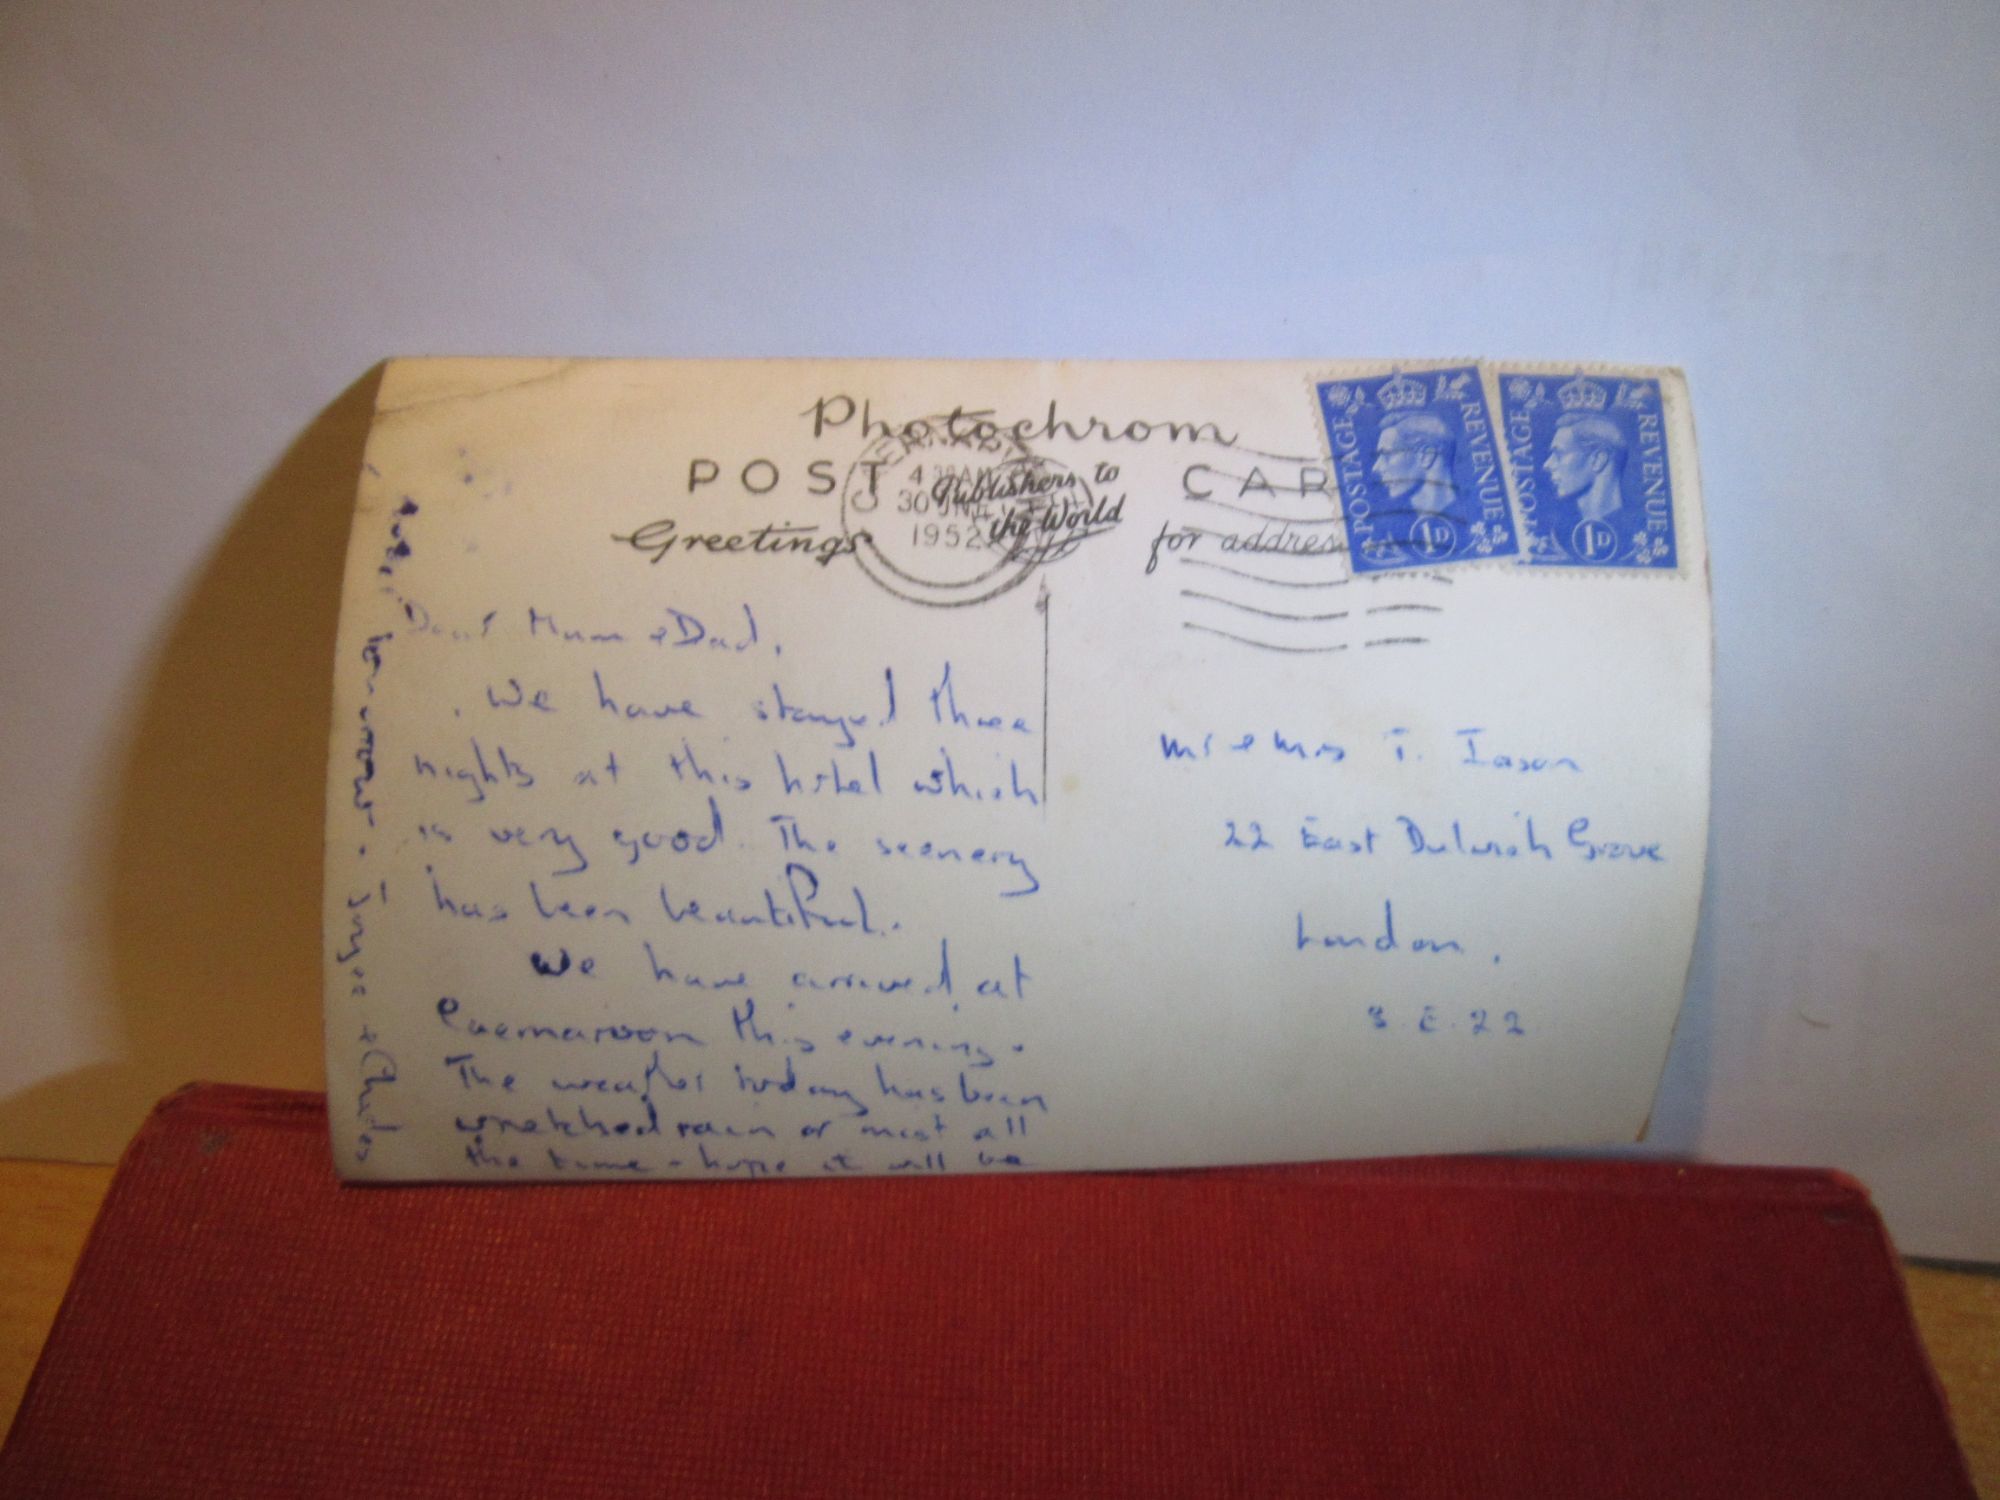 Photochrom
POST CAR
Publishers to
the World
Greetings
for addres
30 JNE
1952
POSTAGE REVENUE 1D
POSTAGE REVENUE 1D
Dear Mum & Dad,
We have stayed three
nights at this hotel which
is very good. The scenery
has been beautiful.
We have arrived at
Caernarvon this evening.
The weather today has been
wretched rain or mist all
the time - hope it will be
better tomorrow. Joyce & Charles
Mr & Mrs T. Iason
22 East Dulwich Grove
London.
S.E.22